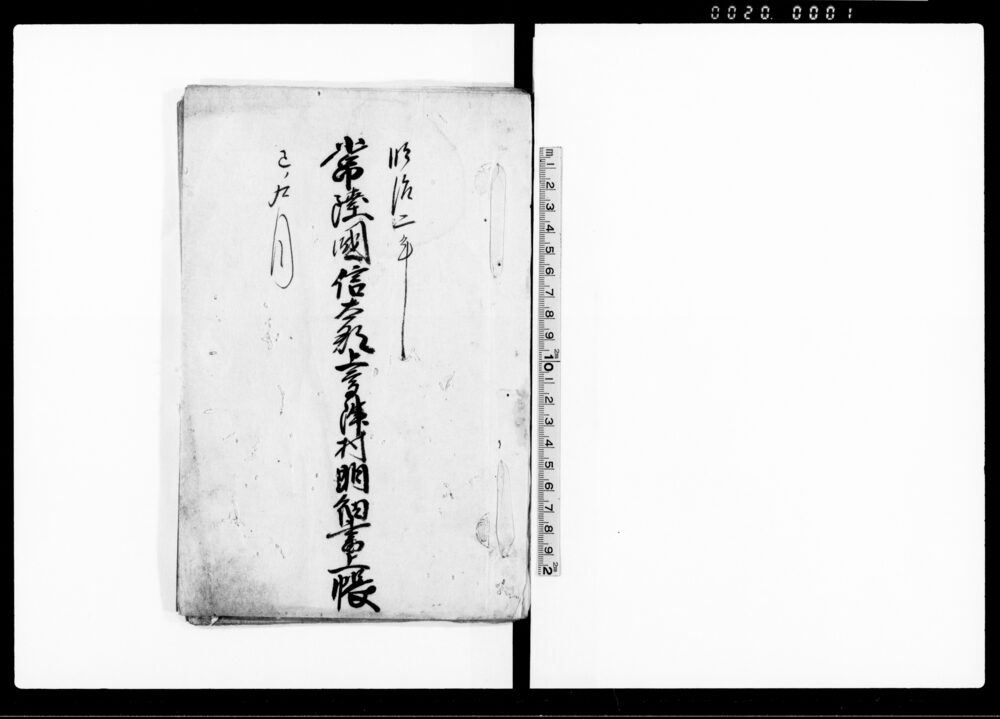 0020. 0001
明治二年
常陸國信太郡上高津村明細書上帳
巳ノ九月
m 1 2 3 4 5 6 7 8 9 10 1 2 3 4 5 6 7 8 9 2